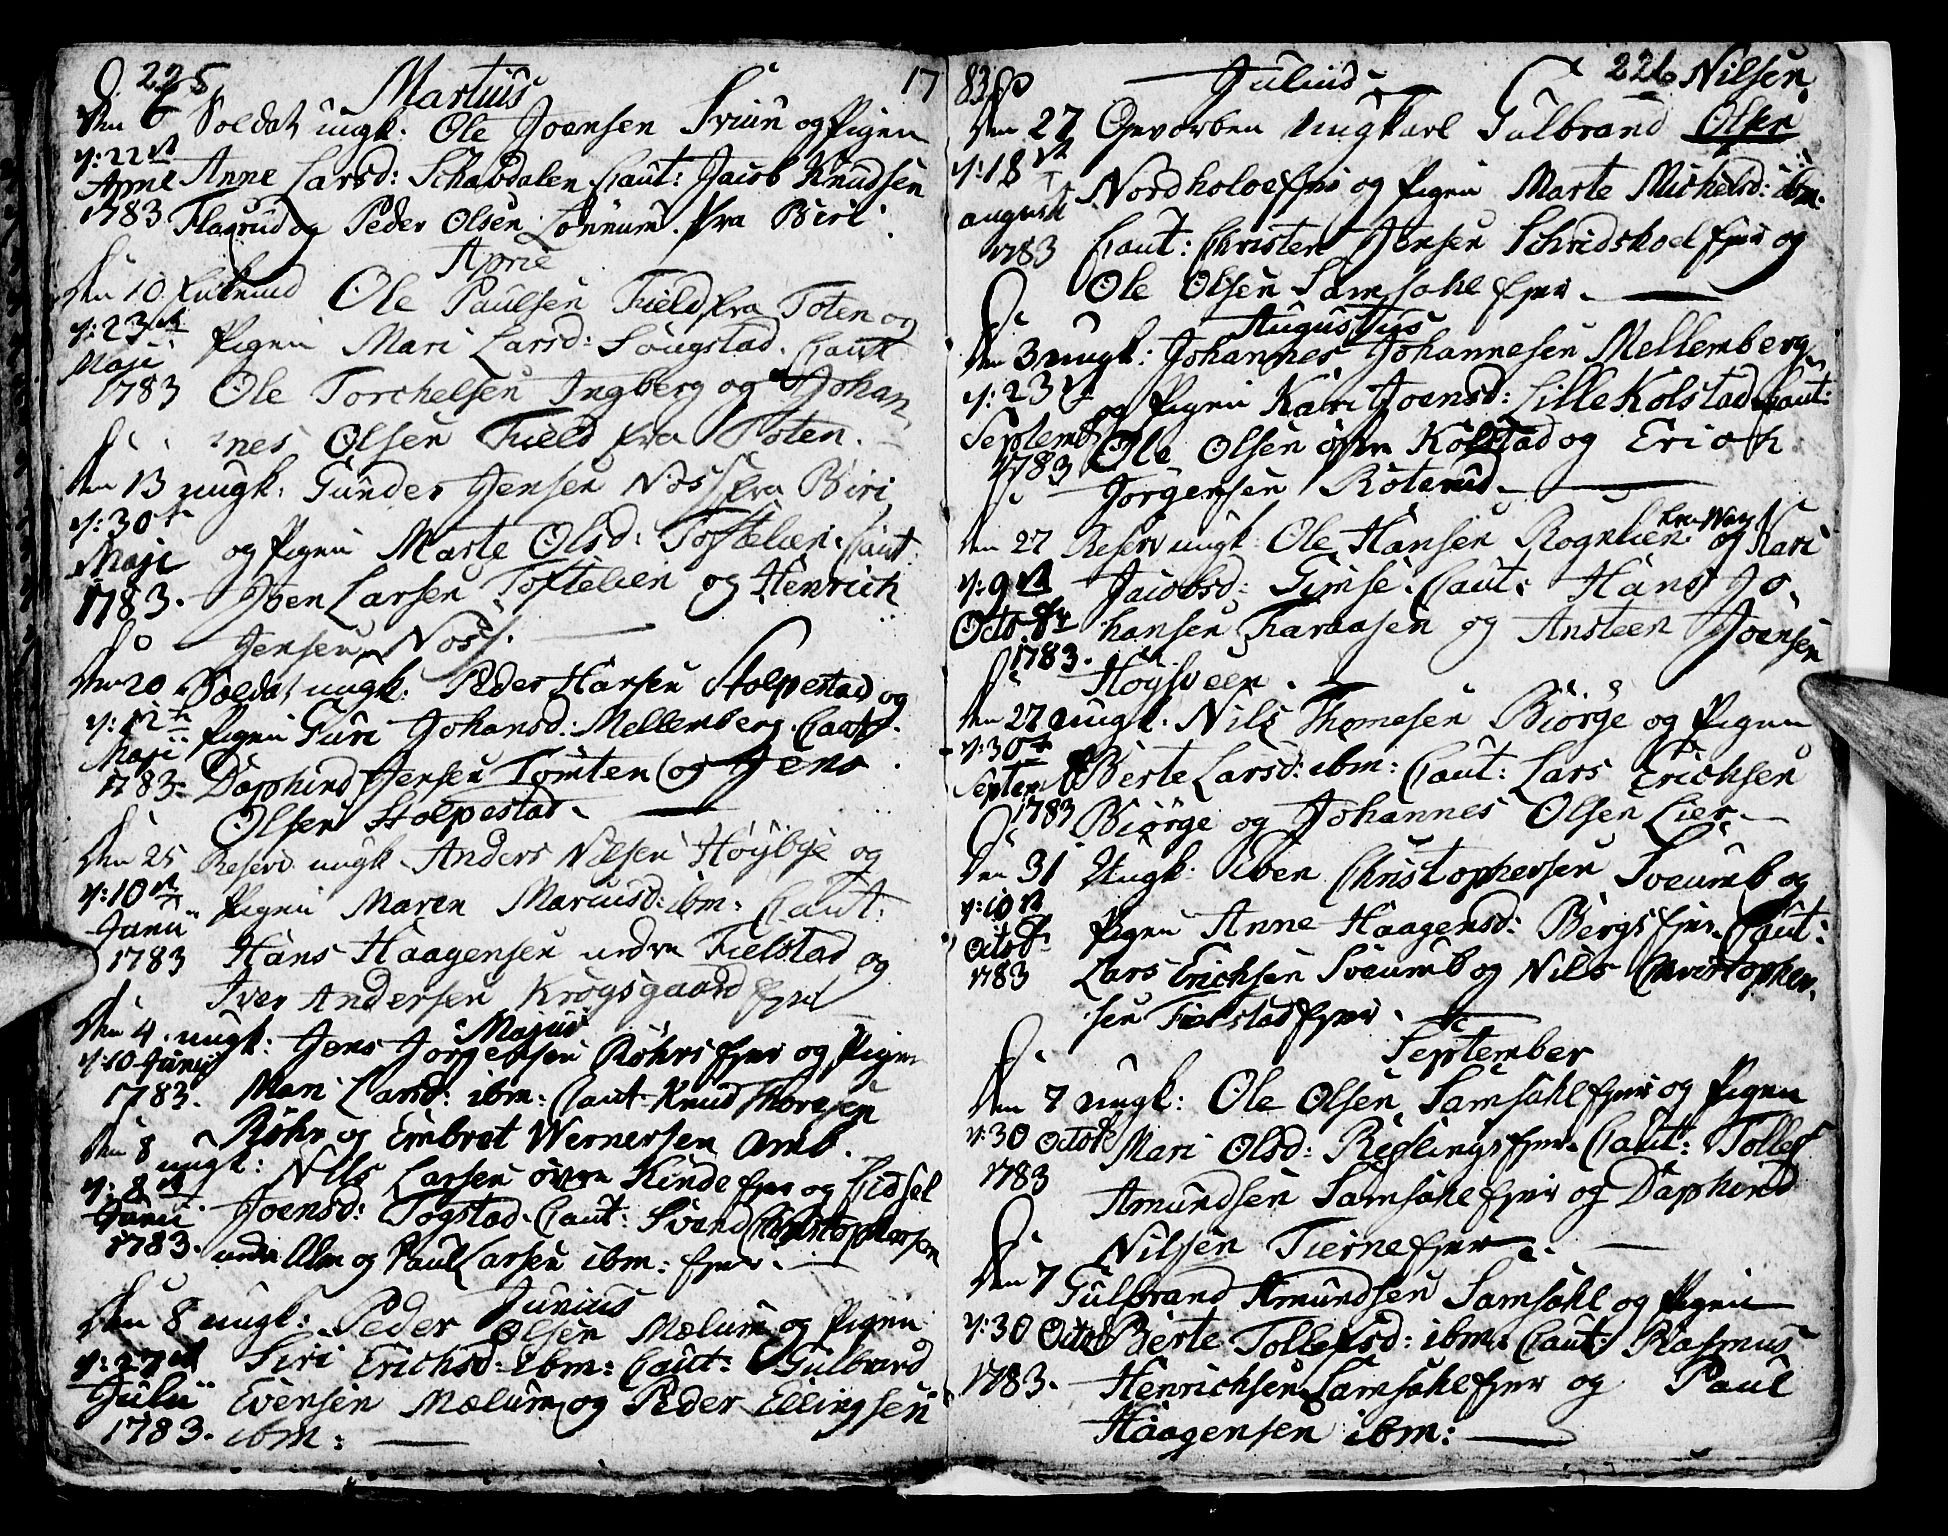 225 Martius 17
Den 6 Soldat ungk. Ole Joensen Sviün og Pigen
Anne Larsd: Schavdalen Caut: Jacob Knudsen
Flagrüd og Peder Olsen Lönnum fra Biri.
d: 22de
Aprie
1783
Aprie
Den 10 Ole Paulsen Field fra Toten og
Pigen Mari Larsd: Sougstad. Caut
Ole Torchelsen Ingberg og Johan
nes Olsen Field fra Toten.
d: 23de
Maji
1783
Den 13 ungk. Gunder Jensen Noss fra Biri
og Pigen Marte Olsd: Toftelien. Caut.
Joen Larsen Toftelien og Henrich
Jensen Noss.
d: 30te
Maji
1783.
Den 20 Soldat ungk. Peder Hansen Stolpestad og
Pigen Guri Johansd: Mellemberg. Caut.
Daphind Jensen Tomten og Jens
Olsen Stolpestad.
d: 12te
Maji
1783.
Den 25 Reserv. ungk. Anders Nilsen Höybye og
Pigen Maren Marcusd: ibm: Caut:
Hans Haagensen nedre Fielstad og
Iver Andersen Krogsgaard fjer
d: 10de
Junii
1783
Majus
Den 4. ungk: Jens Jorgensen Röhrs fjer og Pigen
Mari Larsd: ibm: Caut Knud Thoresen
Röhr og Embret Wernersen Amb.
d: 10 Junij
1783.
Den 8 ungk: Nils Larsen övre Kinde fjer og Eidsel
Joensd: Togstad. Caut: Svend Christophersen
nedre Alm og Paul Larsen ibm: fjer.
d: 8de
Junii
1783.
Junius
Den 8 ungk: Peder Olsen Mælum og Pigen
Siri Erichsd: ibm: Caut: Gulbrand
Evensen Mælum og Peder Ellingsen
ibm:
d: 27de
Julii
1783.
83 Julius 226 Nilsen
Den 27 Gevorben Ungkarl Gulbrand Olsen
Nordholoe fjer og Pigen Marte Michelsd: ibm.
Caut: Christen Jensen Schridshoel fjer og
Ole Olsen Samsahl fjer.
d: 18de
august
1783
Augustus
Den 3 ungk: Johannes Johannesen Mellemberg
og Pigen Kari Joensd: Lille Kolstad Caut:
Ole Olsen öfre Kolstad og Erich
Jörgensen Roterud.
d: 23de
Septemb
1783
Den 27 Reserv ungk Ole Hansen Rognlien og Kari
Jacobsd: Gimse. Caut: Hans Jo-
hansen Faraasen og Ansteen Joensen
Höysveen.
d: 9de
Octobr
1783.
Den 27 ungk. Nils Thomesen Biörge og Pigen
Berte Larsd: ibm: Caut: Lars Erichsen
Biörge og Johannes Olsen Lier.
d: 30te
Septemb
1783
Den 31 Ungk. Iben Christophersen Sveumb og
Pigen Anne Haagensd: Bergs fjer. Caut:
Lars Erichsen Sveumb og Nils Christopher-
sen Fielstad fjer.
d: 10de
Octob
1783
September
Den 7 ungk: Ole Olsen Samsahl fjer og Pigen
Mari Olsd: Ryslings fjer. Caut: Tollef
Amundsen Samsahl fjer og Daphind
Nilsen Tierne fjer.
d: 30 Octob
1783
Den 7 Gulbrand Amundsen Samsahl og Pigen
Berte Tollefsd: ibm. Caut: Rasmus
Henrichsen Samsahl fjer og Paul
Haagensen ibm:
d: 30 Octob
1783.